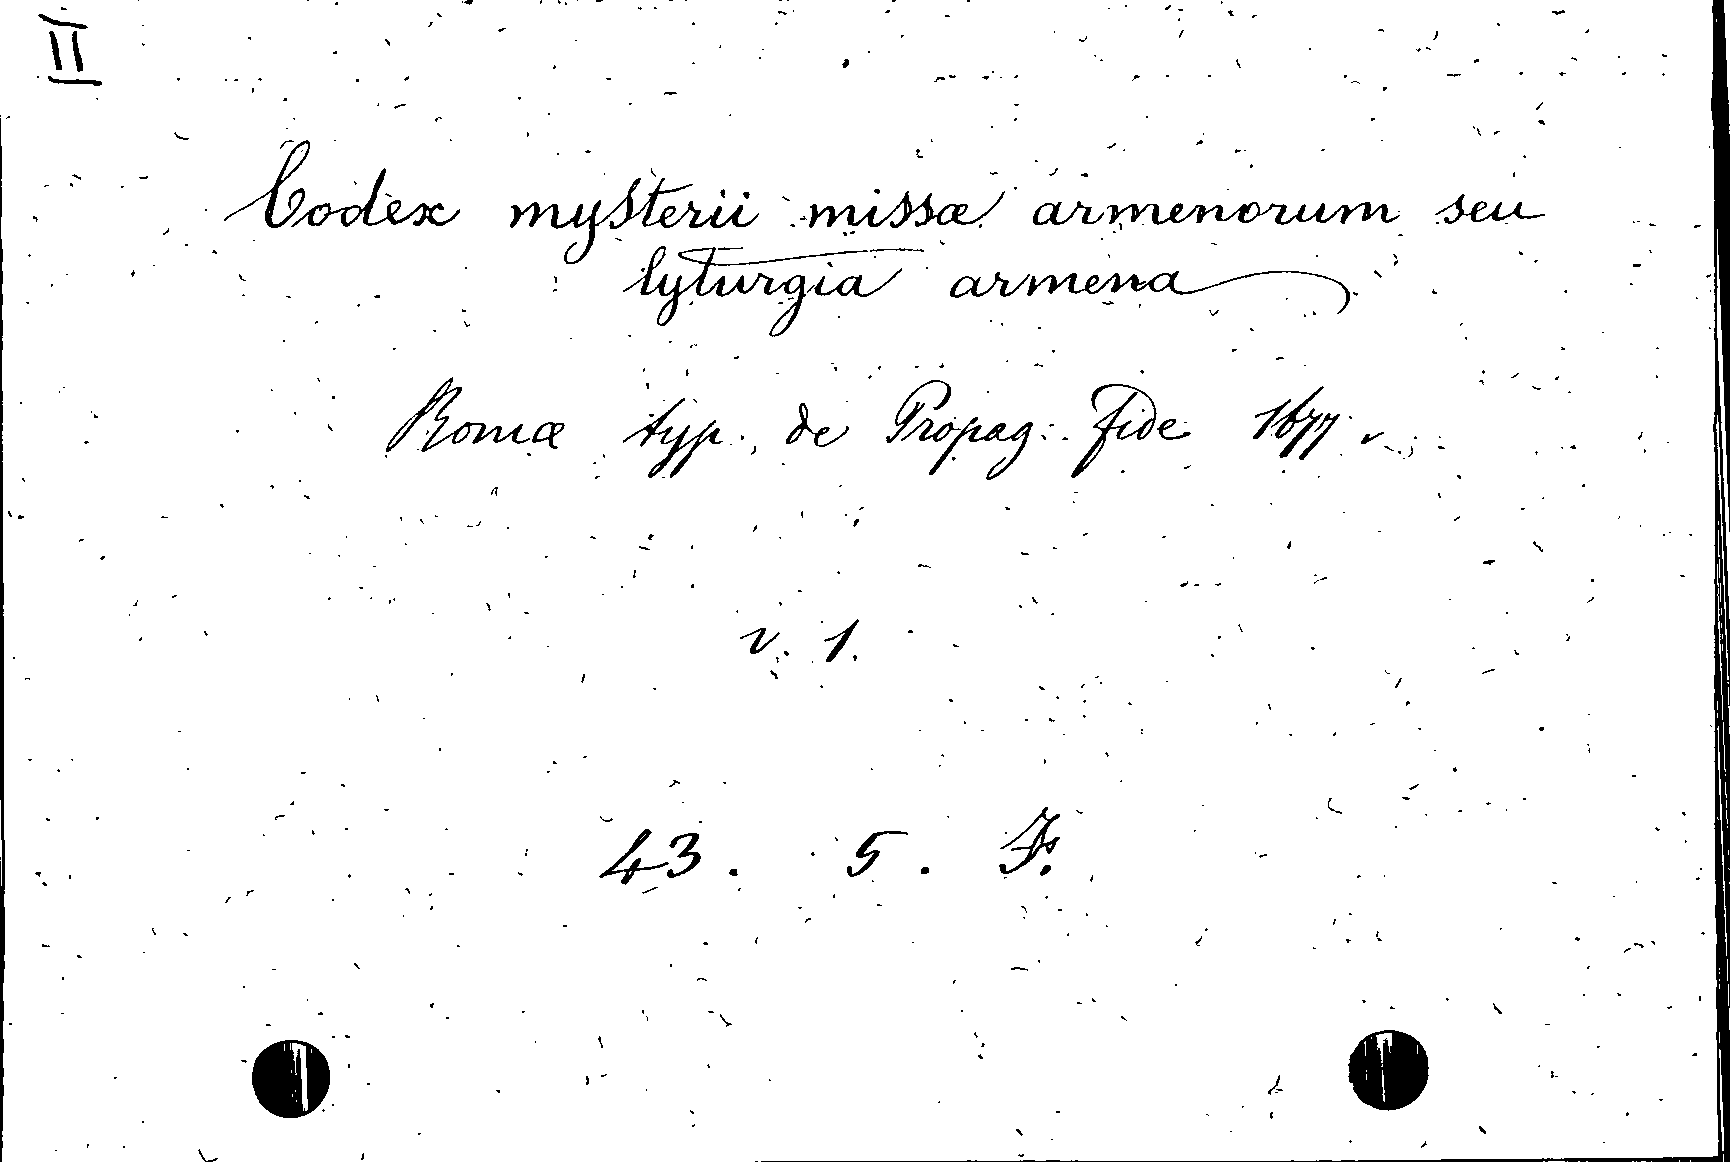 II
Codex mysterii missæ armenorum seu
lyturgia armena
Romæ typ. de Propag: Fide 1677
v. 1.
43. 5. F.